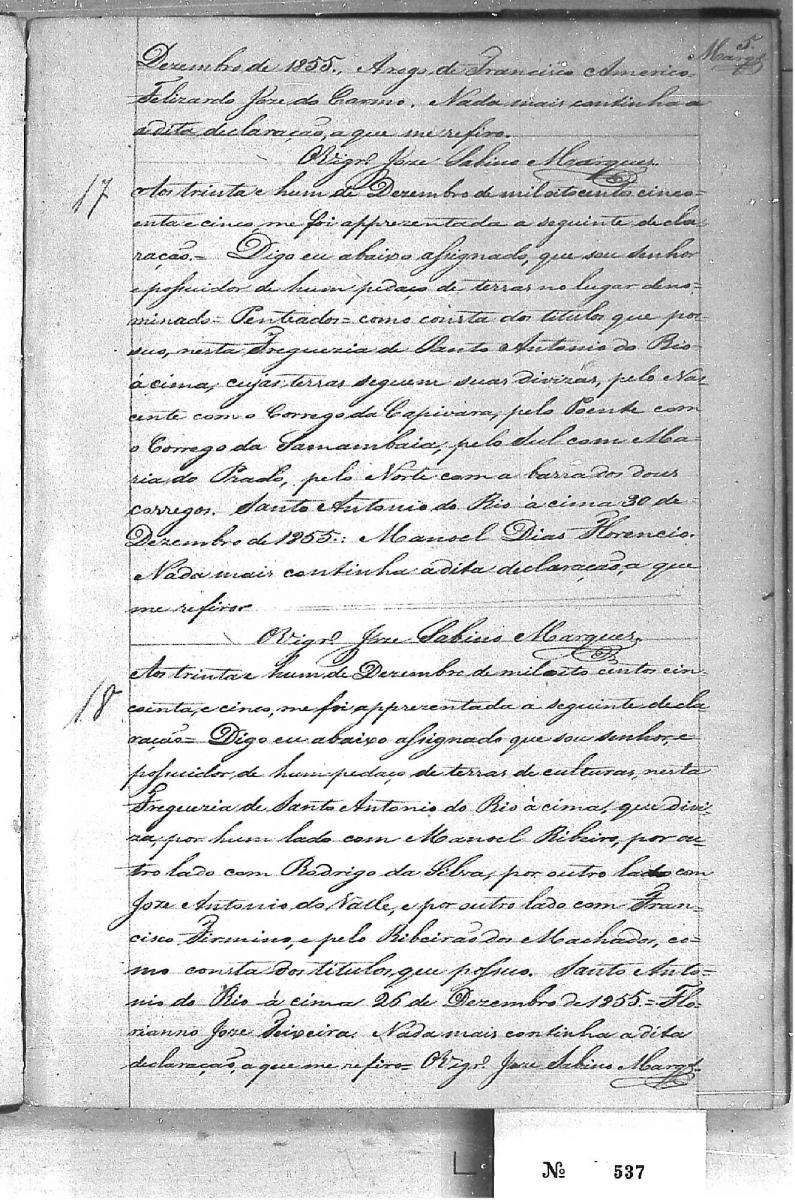 5.
Marqs
Dezembro de 1855., Arogo de Francisco Americo
Felizardo Joze do Carmo. Nada mais continha a
adita declaração, a que me refiro.
OVigrº Joze Sabino Marques.
17
Aos trinta e hum de Dezembro de miloitocentos cinco-
enta e cinco, me foi apprezentada a seguinte decla-
ração.= Digo eu abaixo assignado, que sou senhor
e possuidor de hum pedaço de terras no lugar deno-
minado= Penteados= como consta dos titulos que pos-
suo, nesta Freguezia de Santo Antonio do Rio
ácima, cujas terras seguem suas divizas, pelo Nas-
cente com o Corrego da Capivara, pelo Poente com
o Corrego da Samambaia, pelo Sul com Ma-
ria do Prado, pelo Norte com a barra dos dous
corregos. Santo Antonio do Rio ácima 30 de
Dezembro de 1855.: Manoel Dias Florencio.
Nada mais continha ádita declaração, a que
me refiro
OVigrº Joze Sabino Marques.
18
Aos trinta e hum de Dezembro de miloito centos cin-
coenta, e cinco, me foi apprezentada a seguinte decla
ração= Digo eu abaixo assignado que sou senhor, e
possuidor, de hum pedaço de terras de culturas, nesta
Freguezia de Santo Antonio do Rio ácima, que divi-
za, por hum lado com Manoel Ribeiro, por ou-
tro lado com Rodrigo da Silva, por outro lado com
Joze Antonio do Valle, e por outro lado com Fran-
cisco Firmino, e pelo Ribeirão dos Machados, co-
mo consta dos titulos, que possuo. Santo Anto-
nio do Rio ácima 26 de Dezembro de 1855.= Flo-
rianno Joze Teixeira. Nada mais continha a dita
declaração, a que me refiro= OVigrº Joze Sabino Marqs.
Nº 537